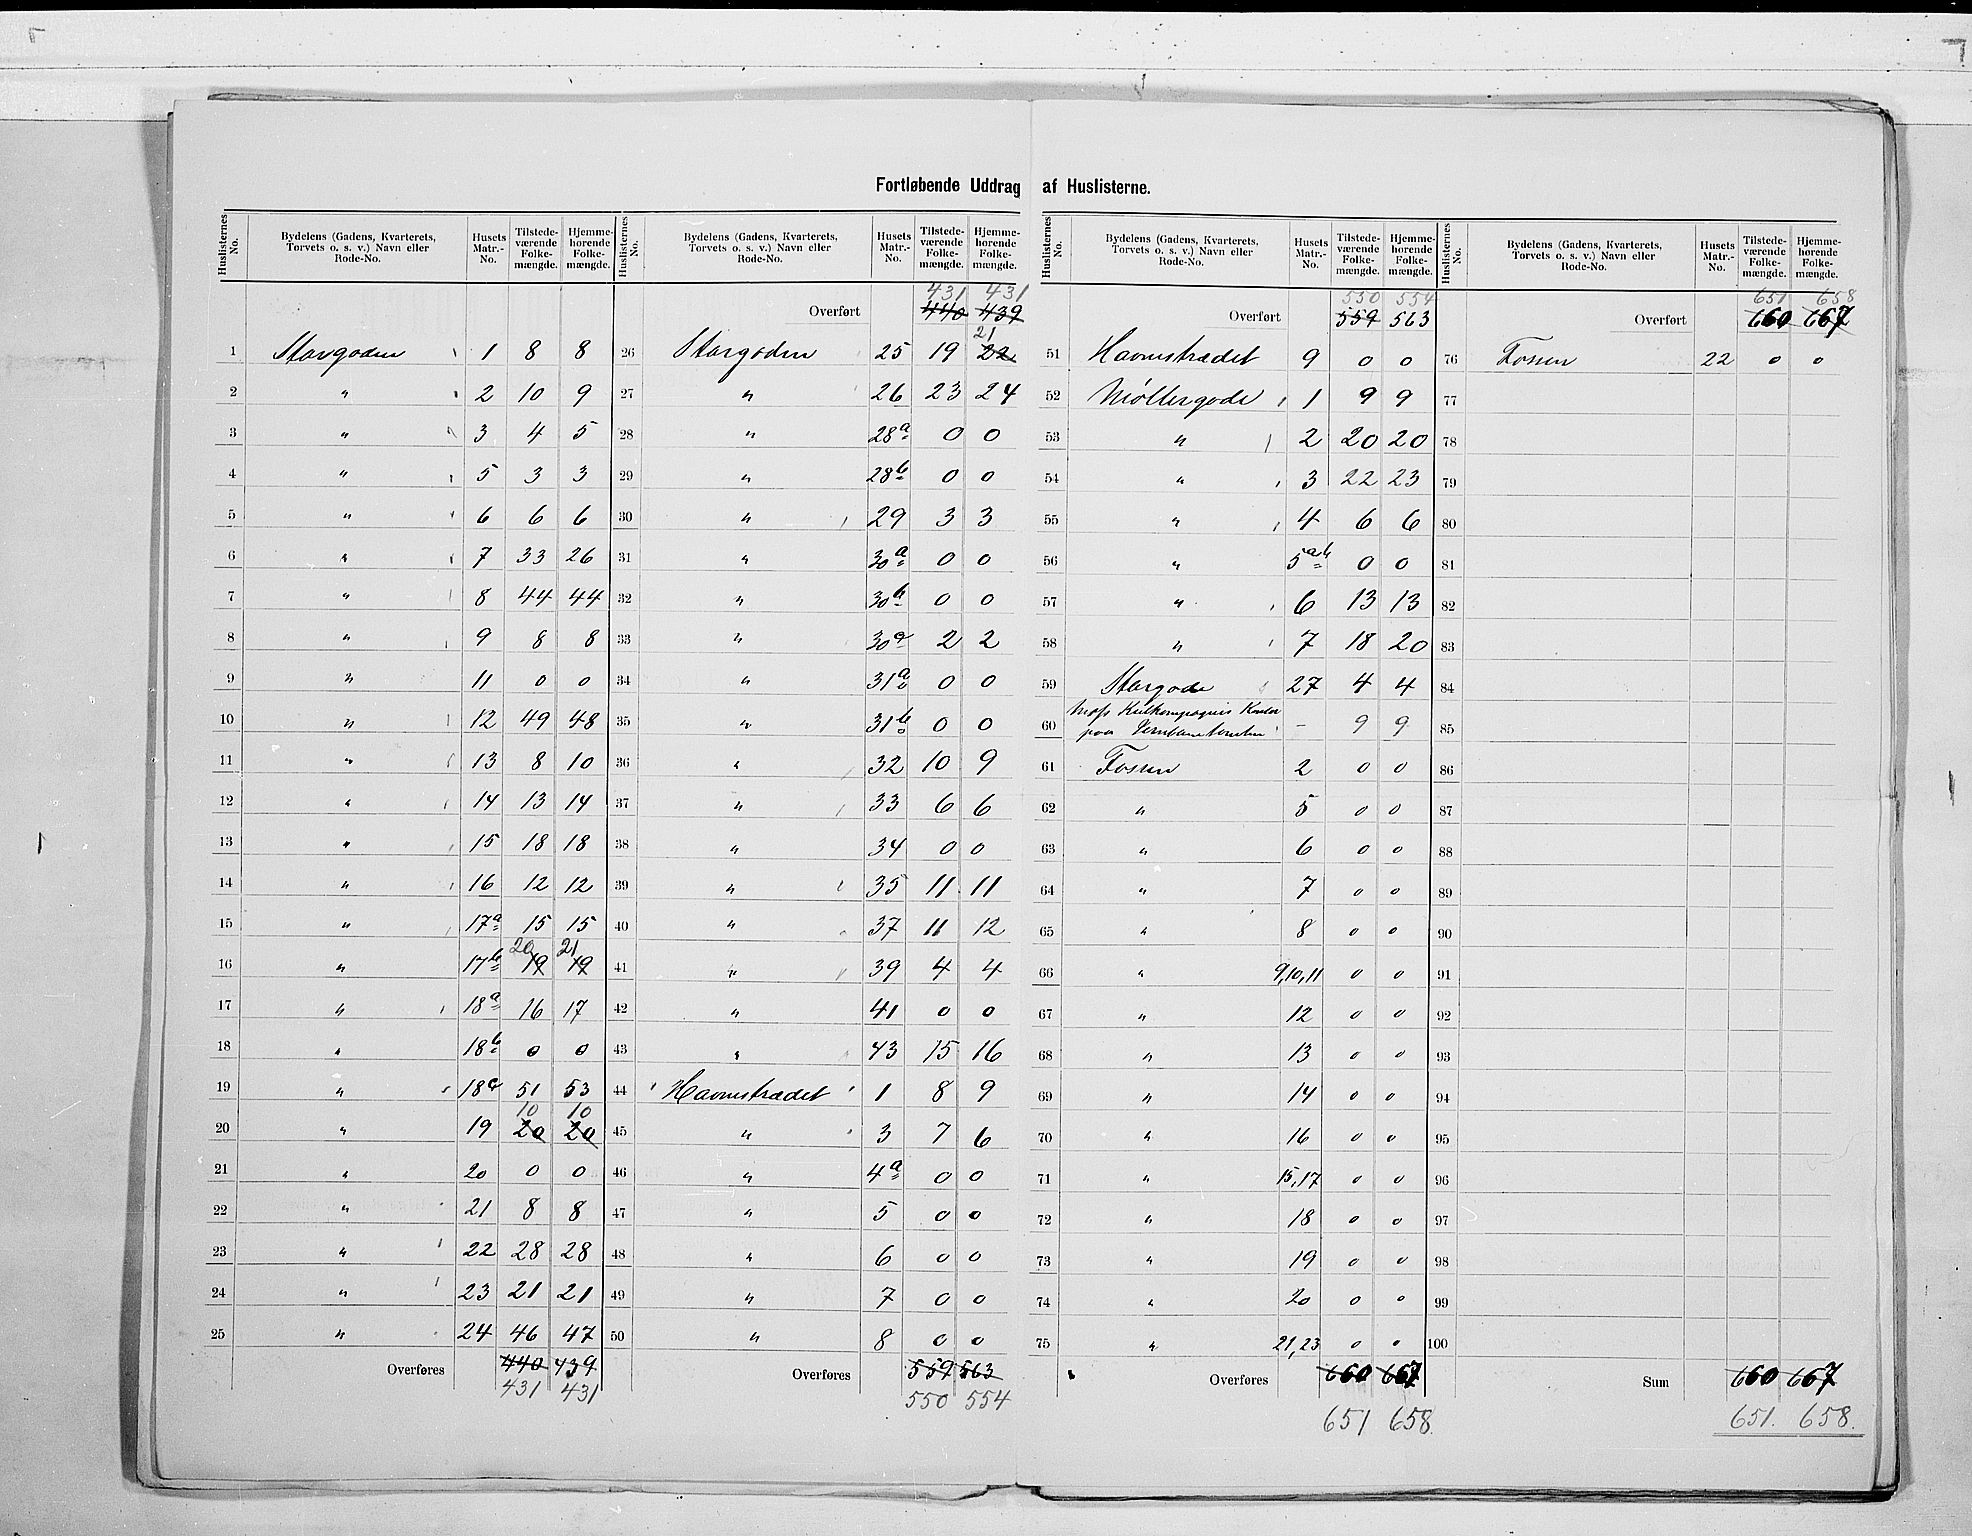 Fortløbende Uddrag af Huslisterne.
Huslisternes No. | Bydelens (Gadens, Kvarterets, Torvets o. s. v.) Navn eller Rode-No. | Husets Matr.-No. | Tilstedeværende Folkemængde. | Hjemmehørende Folkemængde.
1 Storgaden 1 8 8
2 " 2 10 9
3 " 3 4 5
4 " 5 3 3
5 " 6 6 6
6 " 7 33 26
7 " 8 44 44
8 " 9 8 8
9 " 11 0 0
10 " 12 49 48
11 " 13 8 10
12 " 14 13 14
13 " 15 18 18
14 " 16 12 12
15 " 17a 15 15
20 21
16 " 17b 19 19
17 " 18a 16 17
18 " 18b 0 0
19 " 18c 51 53
10 10
20 " 19 20 20
21 " 20 0 0
22 " 21 8 8
23 " 22 28 28
24 " 23 21 21
25 " 24 46 47
Overføres 440 439
431 431
Huslisternes No. | Bydelens (Gadens, Kvarterets, Torvets o. s. v.) Navn eller Rode-No. | Husets Matr.-No. | Tilstedeværende Folkemængde. | Hjemmehørende Folkemængde.
431 431
Overført 440 439
21
26 Storgaden 25 19 22
27 " 26 23 24
28 " 28a 0 0
29 " 28b 0 0
30 " 29 3 3
31 " 30a 0 0
32 " 30b 0 0
33 " 30c 2 2
34 " 31a 0 0
35 " 31b 0 0
36 " 32 10 9
37 " 33 6 6
38 " 34 0 0
39 " 35 11 11
40 " 37 11 12
41 " 39 4 4
42 " 41 0 0
43 " 43 15 16
44 Havnestrædet 1 8 9
45 " 3 7 6
46 " 4a 0 0
47 " 5 0 0
48 " 6 0 0
49 " 7 0 0
50 " 8 0 0
Overføres 559 563
550 554
Huslisternes No. | Bydelens (Gadens, Kvarterets, Torvets o. s. v.) Navn eller Rode-No. | Husets Matr.-No. | Tilstedeværende Folkemængde. | Hjemmehørende Folkemængde.
550 554
Overført 559 563
51 Havnestrædet 9 0 0
52 Møllergade 1 9 9
53 " 2 20 20
54 " 3 22 23
55 " 4 6 6
56 " 5ab 0 0
57 " 6 13 13
58 " 7 18 20
59 Storgade 27 4 4
60 Moss Kulkompagnis Kontor
paa - 9 9
61 Fossen 2 0 0
62 " 5 0 0
63 " 6 0 0
64 " 7 0 0
65 " 8 0 0
66 " 9,10,11 0 0
67 " 12 0 0
68 " 13 0 0
69 " 14 0 0
70 " 16 0 0
71 " 15,17 0 0
72 " 18 0 0
73 " 19 0 0
74 " 20 0 0
75 " 21,23 0 0
Overføres 660 667
651 658.
Huslisternes No. | Bydelens (Gadens, Kvarterets, Torvets o. s. v.) Navn eller Rode-No. | Husets Matr.-No. | Tilstedeværende Folkemængde. | Hjemmehørende Folkemængde.
651 658
Overført 660 667
76 Fossen 22 0 0
77
78
79
80
81
82
83
84
85
86
87
88
89
90
91
92
93
94
95
96
97
98
99
100
Sum 660 667
651. 658.